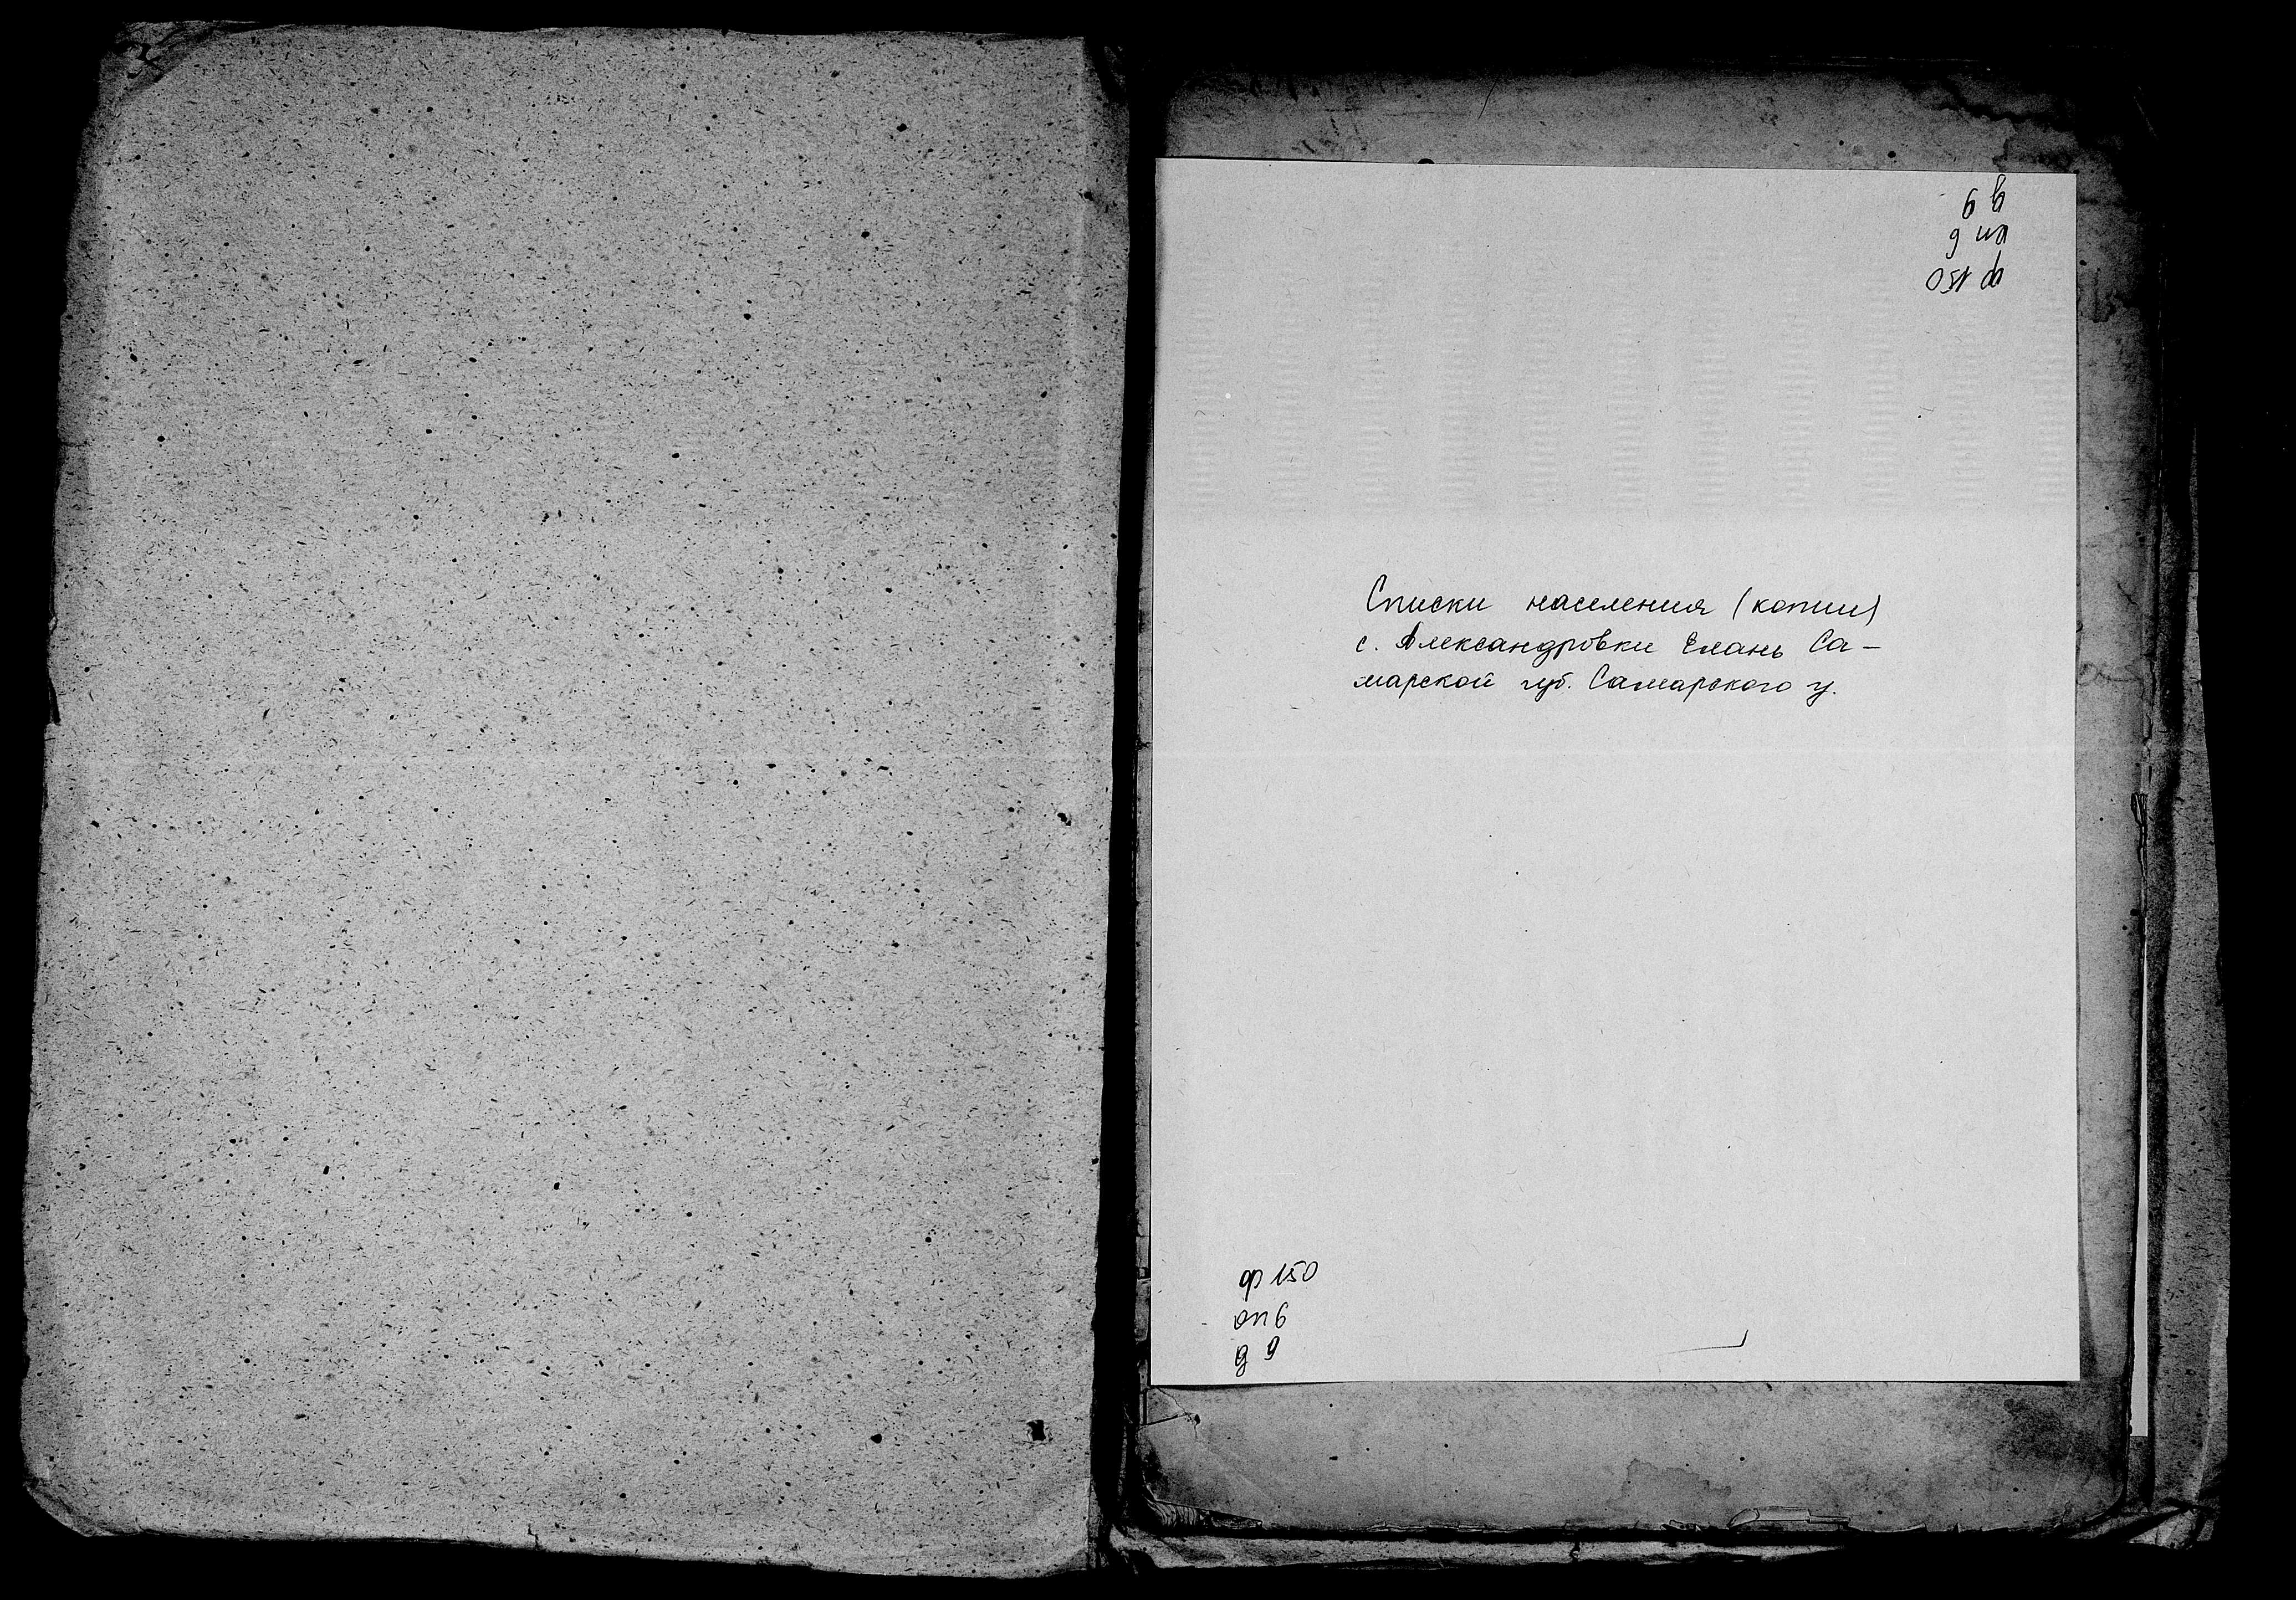 ф 150
оп 6
д 9
Списки населения (копии)
с. Александровки Елань Са-
марской губ. Самарского у.
ф 150
оп 6
д 9